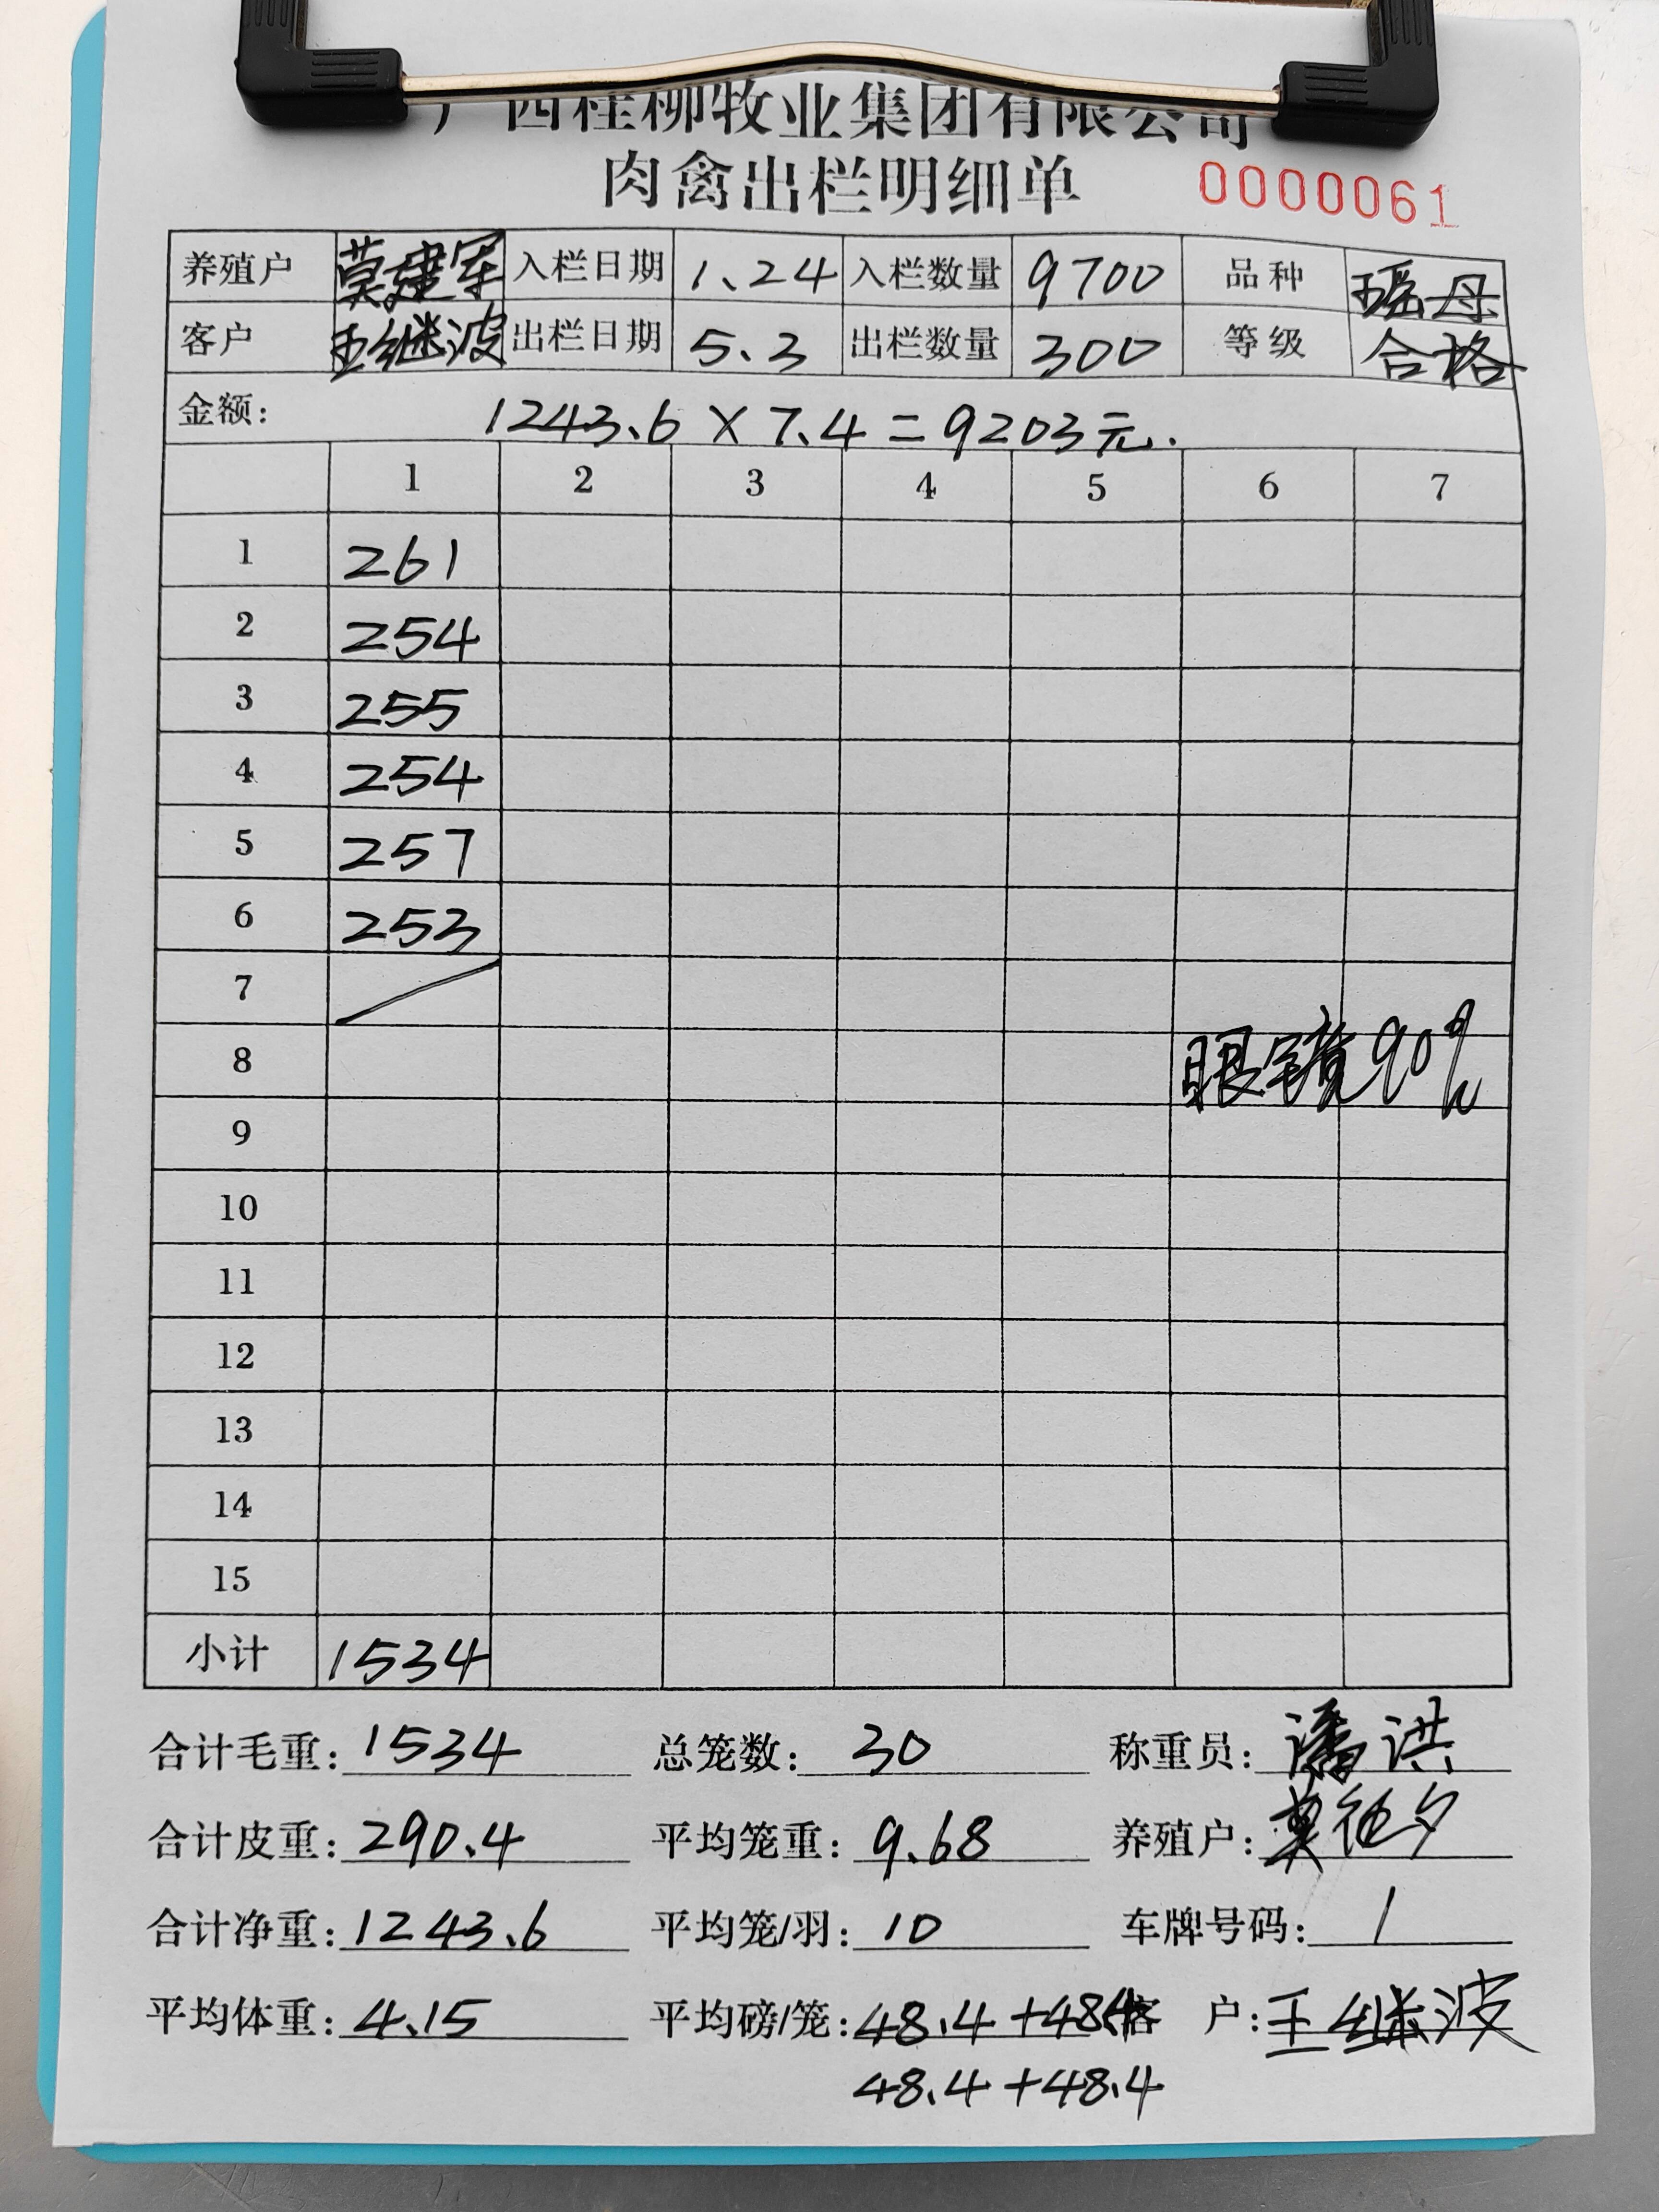 广西桂柳牧业集团有限公司
肉禽出栏明细单 0000061
养殖户 莫建军 入栏日期 1、24 入栏数量 9700 品种 瑶母
客户 王继波 出栏日期 5、3 出栏数量 300 等级 合格
金额: 1243.6 × 7.4 = 9203元.
1 2 3 4 5 6 7
1 261
2 254
3 255
4 254
5 257
6 253
7
8 眼镜90%
9
10
11
12
13
14
15
小计 1534
合计毛重: 1534 总笼数: 30 称重员: 潘洪
合计皮重: 290.4 平均笼重: 9.68 养殖户:
合计净重: 1243.6 平均笼/羽: 10 车牌号码: /
平均体重: 4.15 平均磅/笼: 48.4+48.4 客 户: 王继波
48.4+48.4